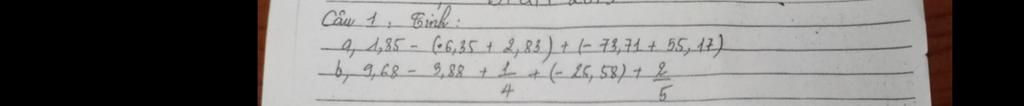 Câu 1. Tính:
a, 1,85 - (-6,35 + 2,83) + (- 73,71 + 55,17)
b, 9,68 - 3,88 + 1/4 + (- 25,58) + 2/5